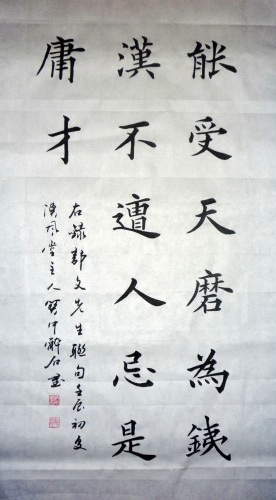 能受天磨為鐵
漢不遭人忌是
庸才
右錄郭文先生聯句壬辰初夏
漢風堂主人